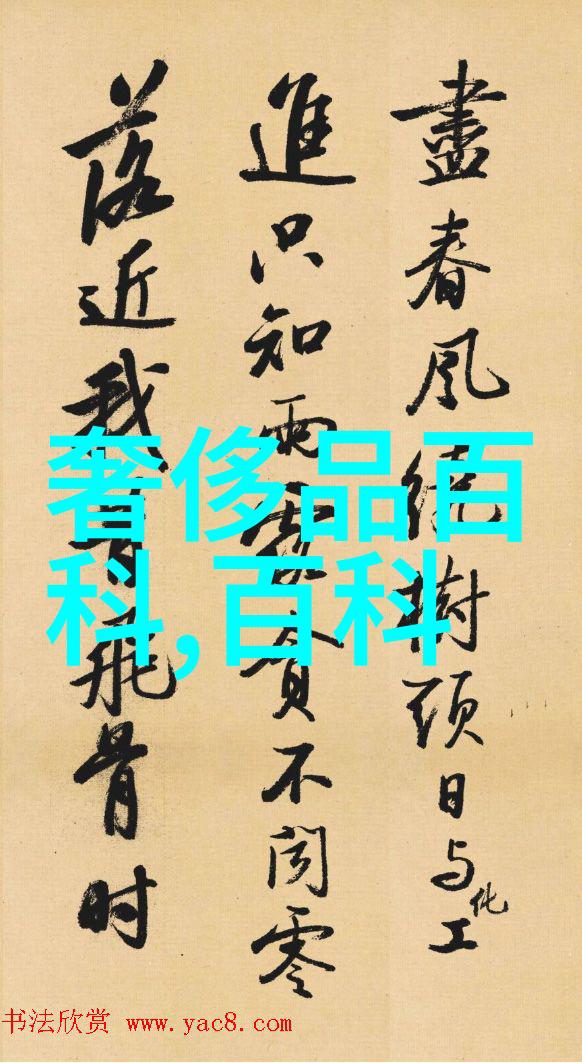 盡春風繞樹頭日与化工
進只知雨露貪不聞零
落近我昔飛骨时
奢侈品百
科,百科
书法欣赏 www.yac8.com